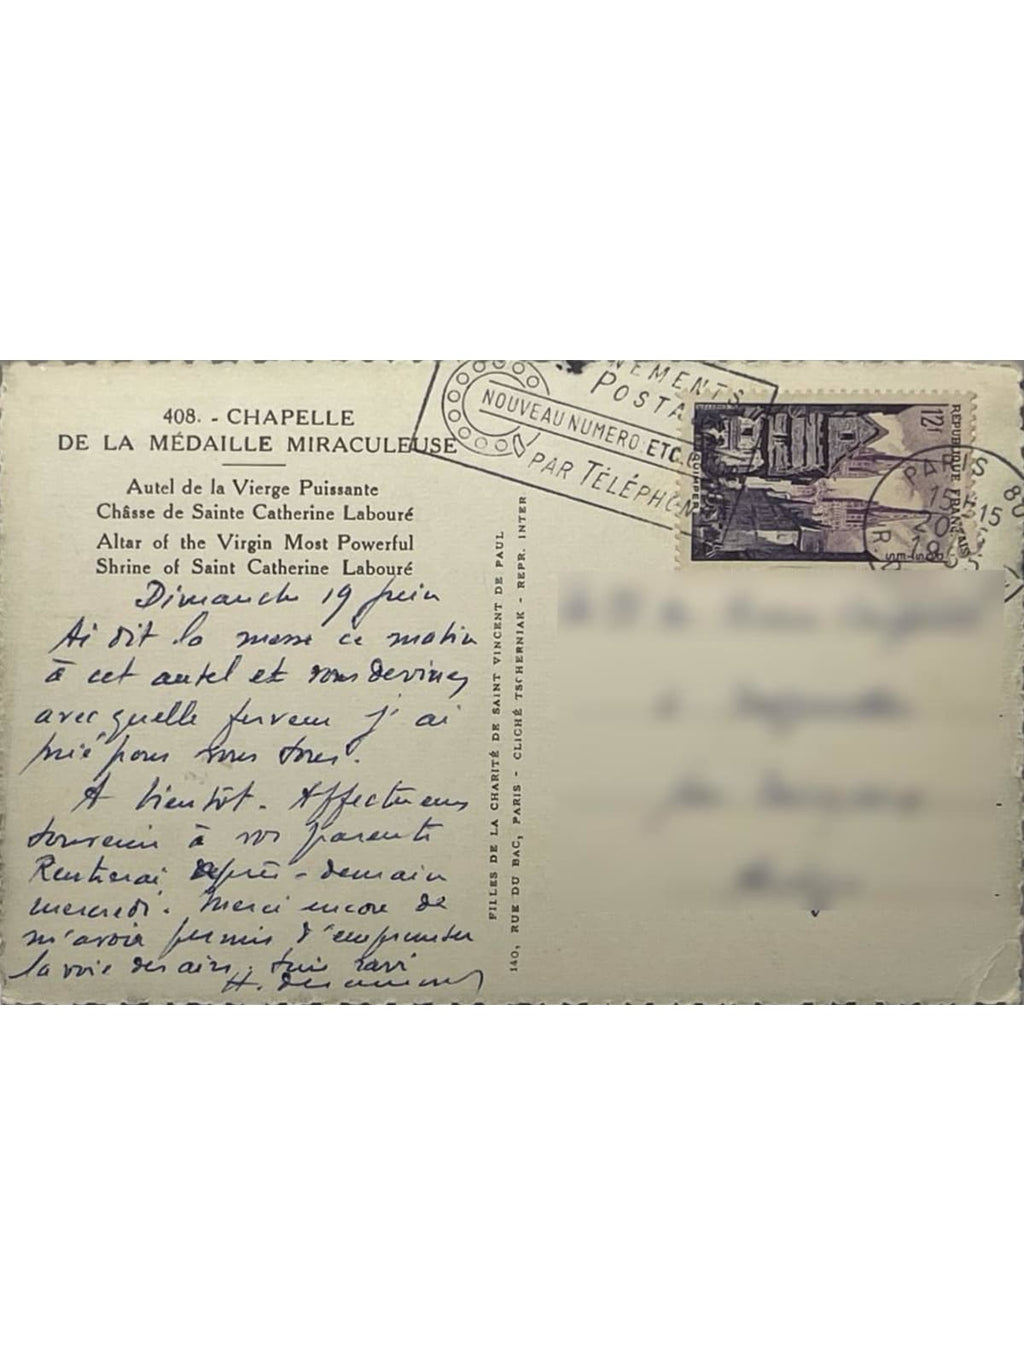 408. - CHAPELLE
DE LA MÉDAILLE MIRACULEUSE
Autel de la Vierge Puissante
Châsse de Sainte Catherine Labouré
Altar of the Virgin Most Powerful
Shrine of Saint Catherine Labouré
Dimanche 19 juin
Ai dit la messe ce matin
à cet autel et vous devinez
avec quelle ferveur j'ai
prié pour vous tous.
A bientôt. Affectueux
souvenir à vos parents
Rentrerai après-demain
mercredi. Merci encore de
m'avoir permis d'emprunter
la voie des airs. Suis ravi
H.
FILLES DE LA CHARITÉ DE SAINT VINCENT DE PAUL
140, RUE DU BAC, PARIS - CLICHÉ TSCHERNIAK - REPR. INTER
NEMENTS
POSTA
NOUVEAU NUMERO: ETC.
PAR TÉLÉPHON
12F
REPUBLIQUE FRANÇAISE
QUIMPER
POSTES
PARIS 80
15 H 15
20